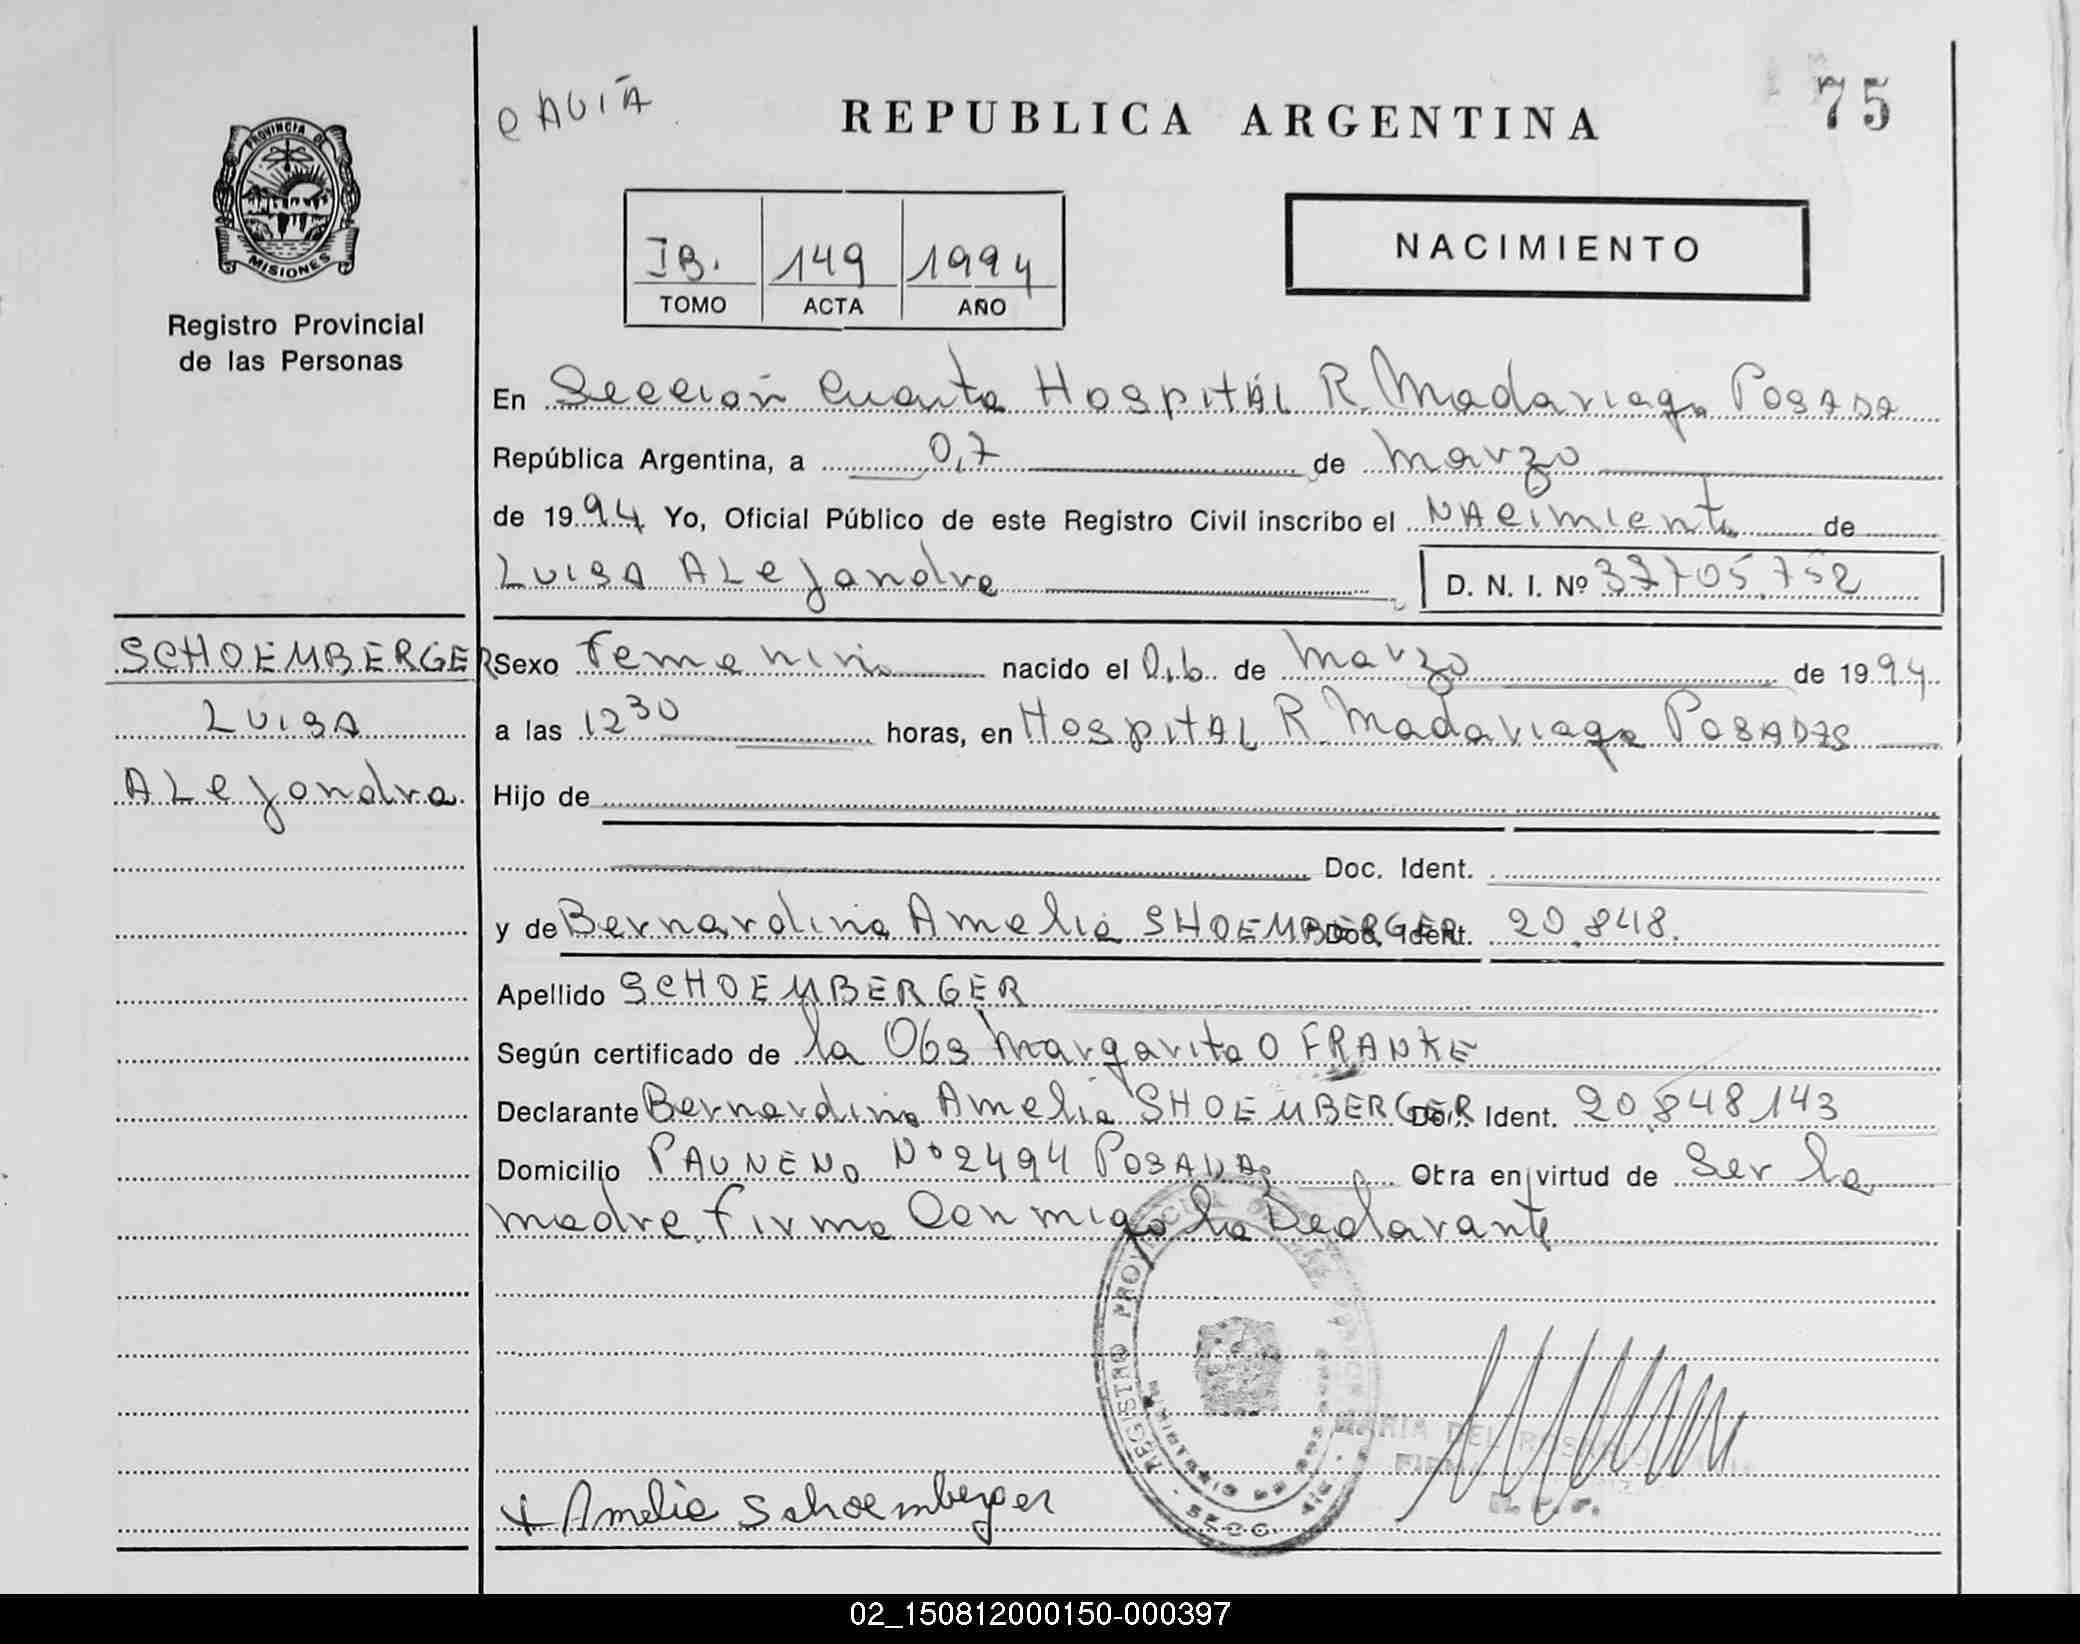 eAVIA
REPUBLICA ARGENTINA
75
PROVINCIA DE
MISIONES
Registro Provincial
de las Personas
IB. 149 1994
TOMO ACTA AÑO
NACIMIENTO
En Sección Cuarta Hospital R. Madariaga Posada
República Argentina, a 0,7 de Marzo
de 1994 Yo, Oficial Público de este Registro Civil inscribo el NAcimiento de
Luisa ALejandra
D. N. I. Nº 37705.752
SCHOEMBERGER
Luisa
ALejandra
Sexo Femenino nacido el 0,6 de Marzo de 1994
a las 12 30 horas, en Hospital R. Madariaga Posadas
Hijo de
Doc. Ident.
y de Bernardina Amelia SHOEMBERGER Doc. Ident. 20.848.
Apellido SCHOEMBERGER
Según certificado de la Obs Margarita O FRANKE
Declarante Bernardina Amelia SHOEMBERGER Doc. Ident. 20.848143
Domicilio Nº 2494 Posadas Otra en virtud de Ser la
madre. firma Conmigo la Declarante
REGISTRO PROVINCIAL DE LAS
SECC.
MARIA DEL ROSARIO
Amelia Schoemberger
02_150812000150-000397